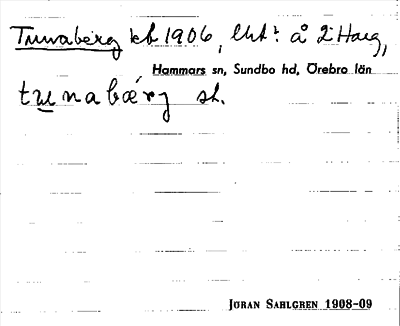 Tunaberg kb 1906, Uht: å 2 Harg,
Hammars sn, Sundbo hd, Örebro län
tunabærg sl.
JÖRAN SAHLGREN 1908-09